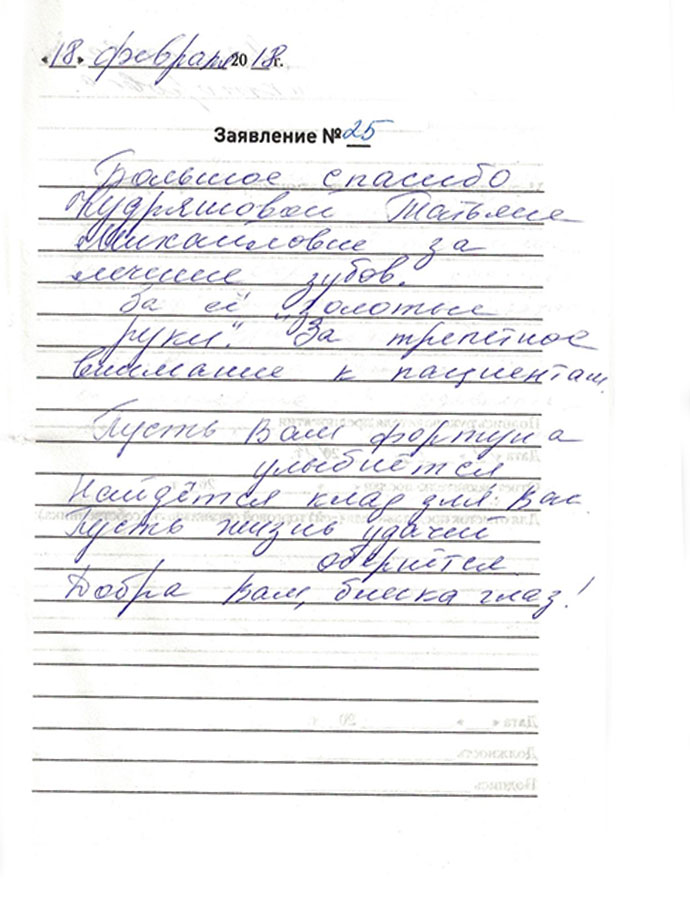 «18» февраля 2018г.
Заявление № 25
Большое спасибо
Кудряшовой Татьяне
Михайловне за
лечение зубов.
За её "золотые
руки". За трепетное
внимание к пациентам.
Пусть Вам фортуна
улыбнётся
Найдётся клад для Вас.
Пусть жизнь удачей
обернётся
Добра Вам, блеска глаз!
Дата « » 20 г.
Должность
Подпись